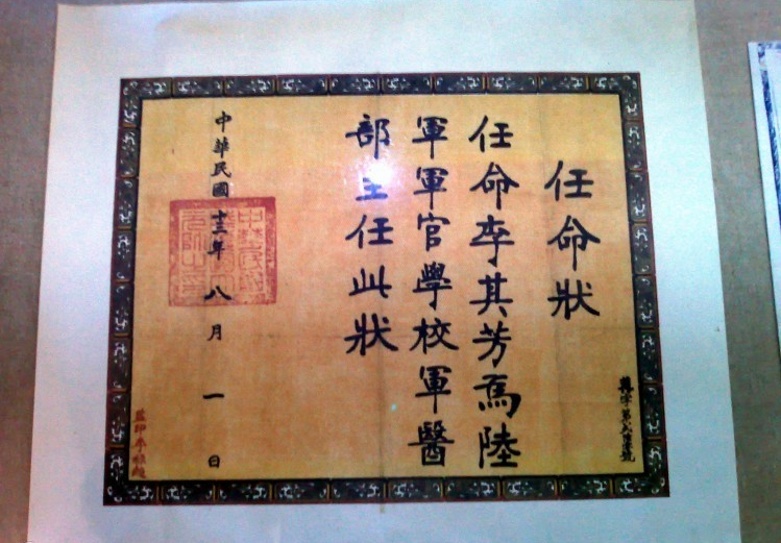 任命狀
任命李其芳為陸
軍軍官學校軍醫
部主任此狀
中華民國十三年八月一日